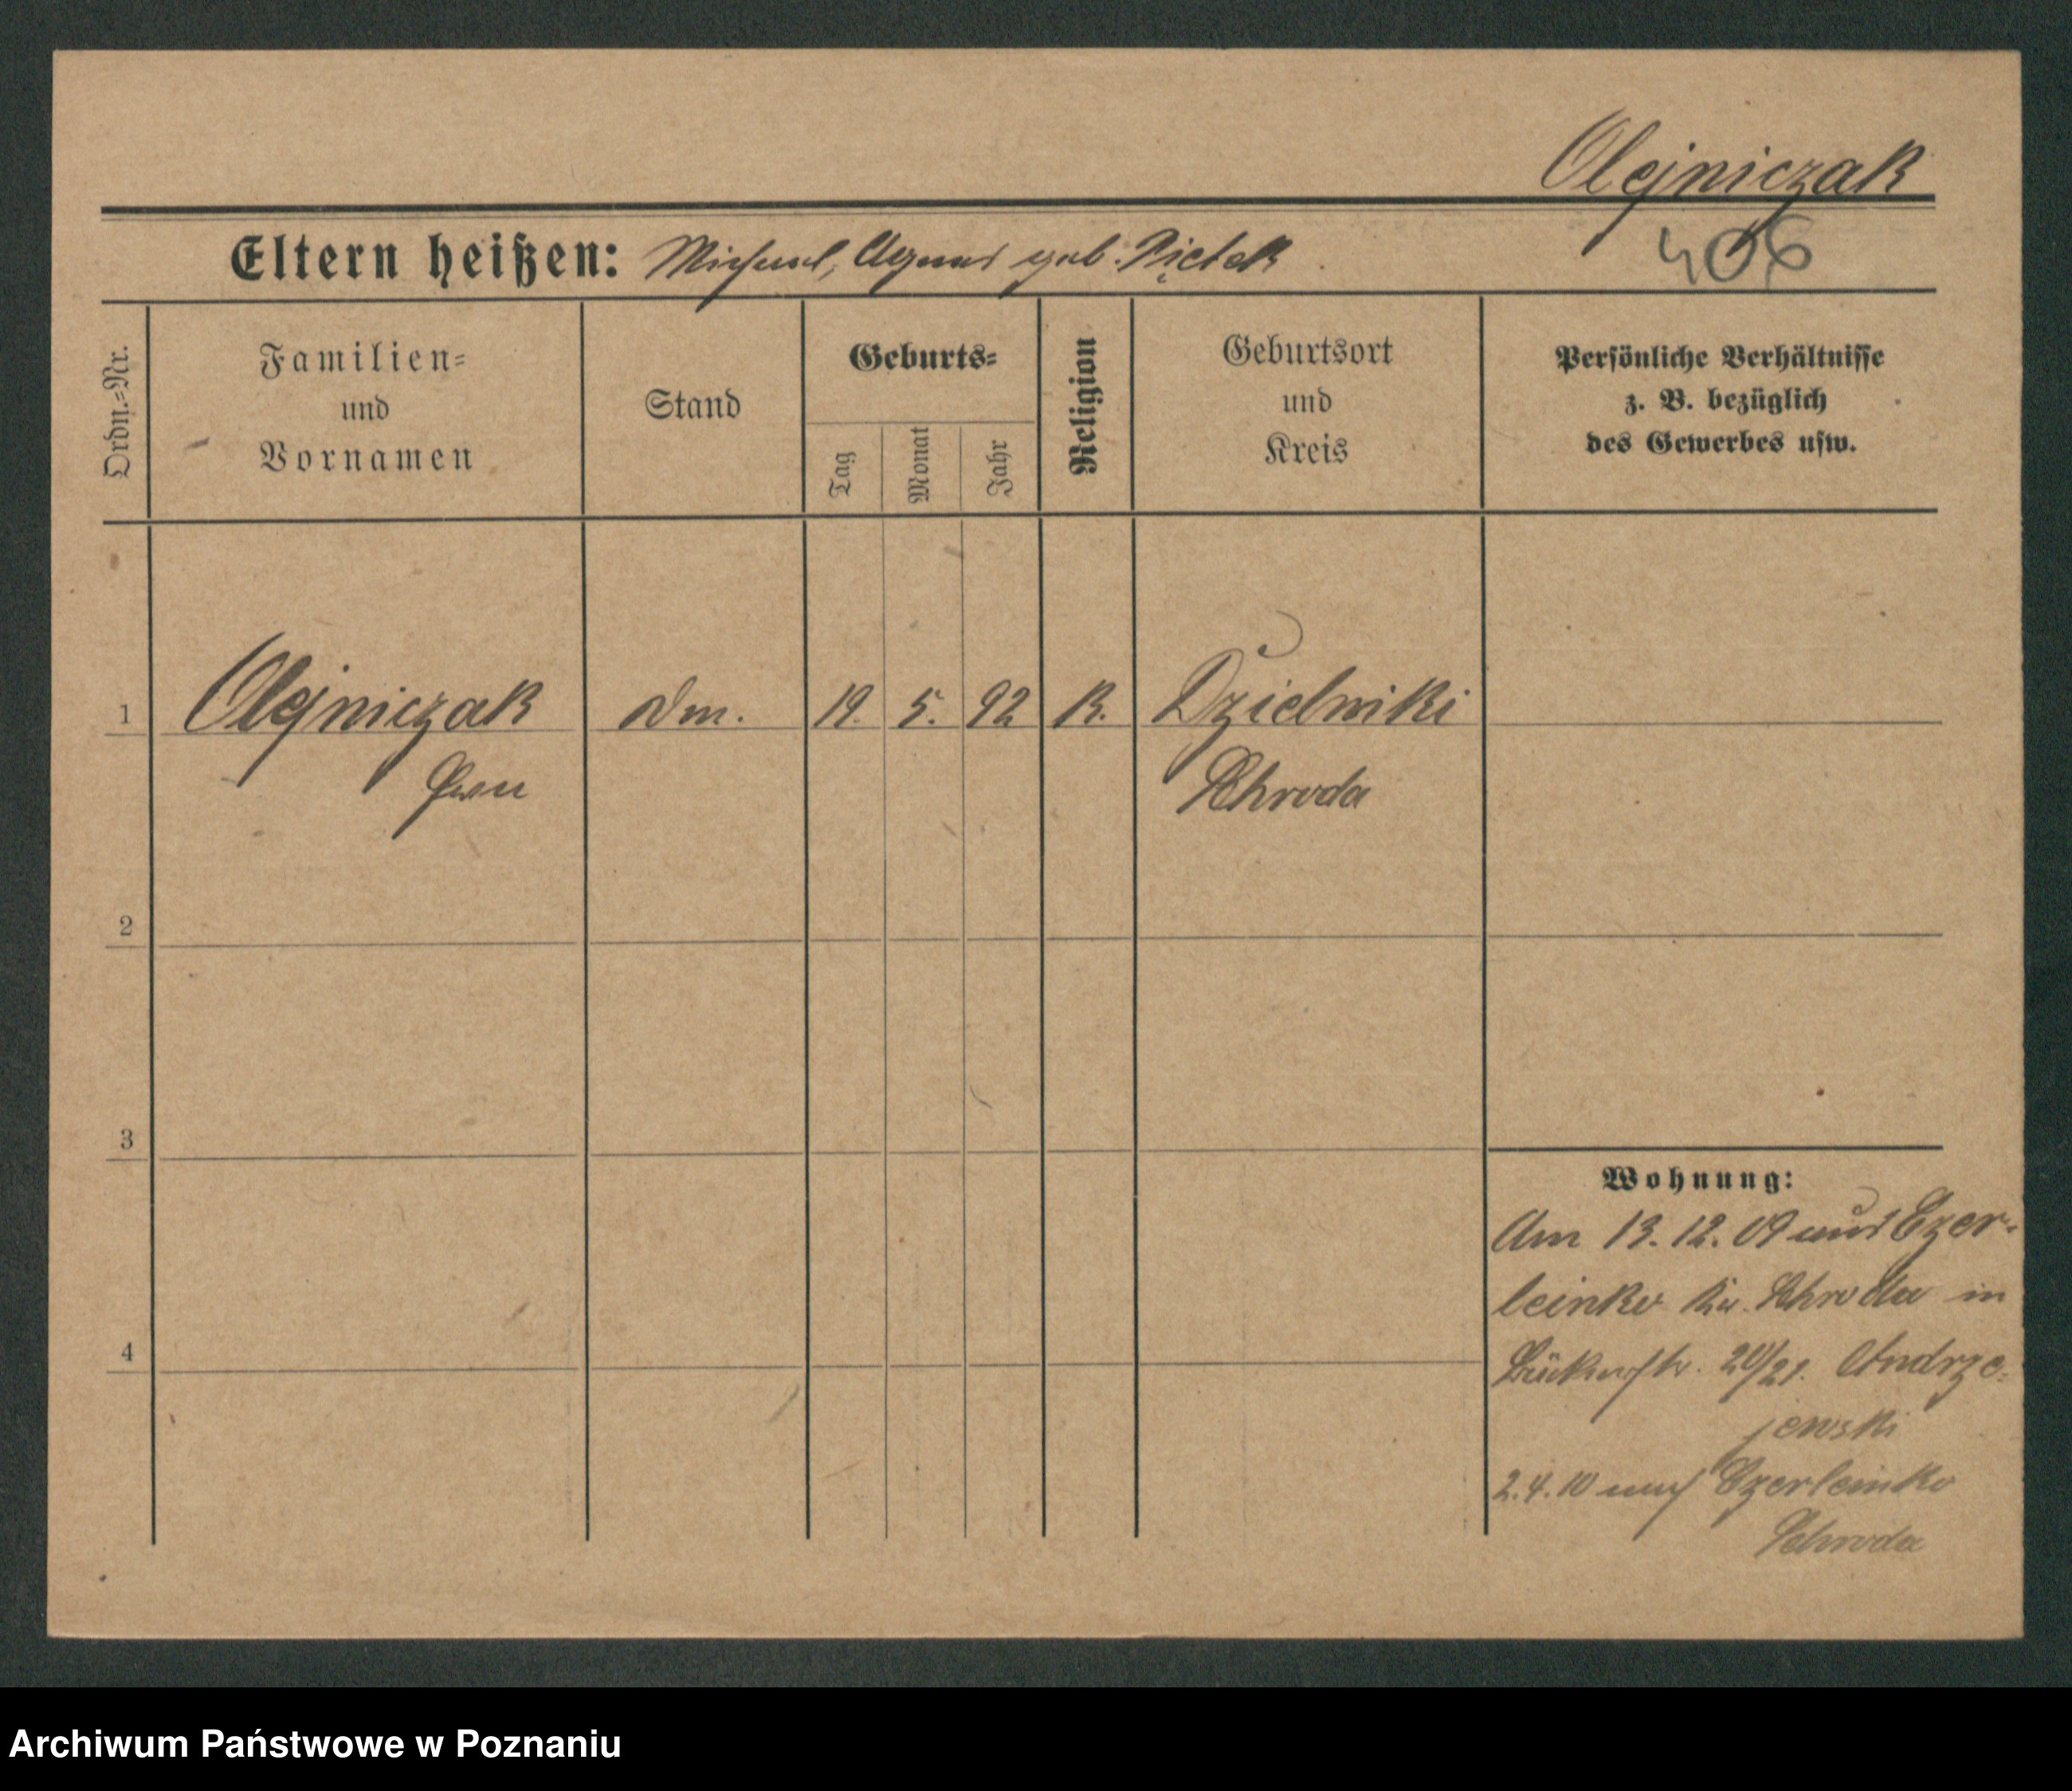 Olejniczak
406
Eltern heißen: Michael, Agnes geb. Piętek
Ordn.=Nr.
Familien=
und
Vornamen
Stand
Geburts=
Tag
Monat
Jahr
Religion
Geburtsort
und
Kreis
Persönliche Verhältnisse
z. B. bezüglich
des Gewerbes usw.
1
Olejniczak
Dm.
19.
5.
92
K.
Dzielniki
Schroda
2
3
4
Wohnung:
Am 13. 12. 09 aus Czer-
leinko Kr. Schroda in
20/21. Andrze-
jewski
2.4.10 nach Czerleinko
Schroda